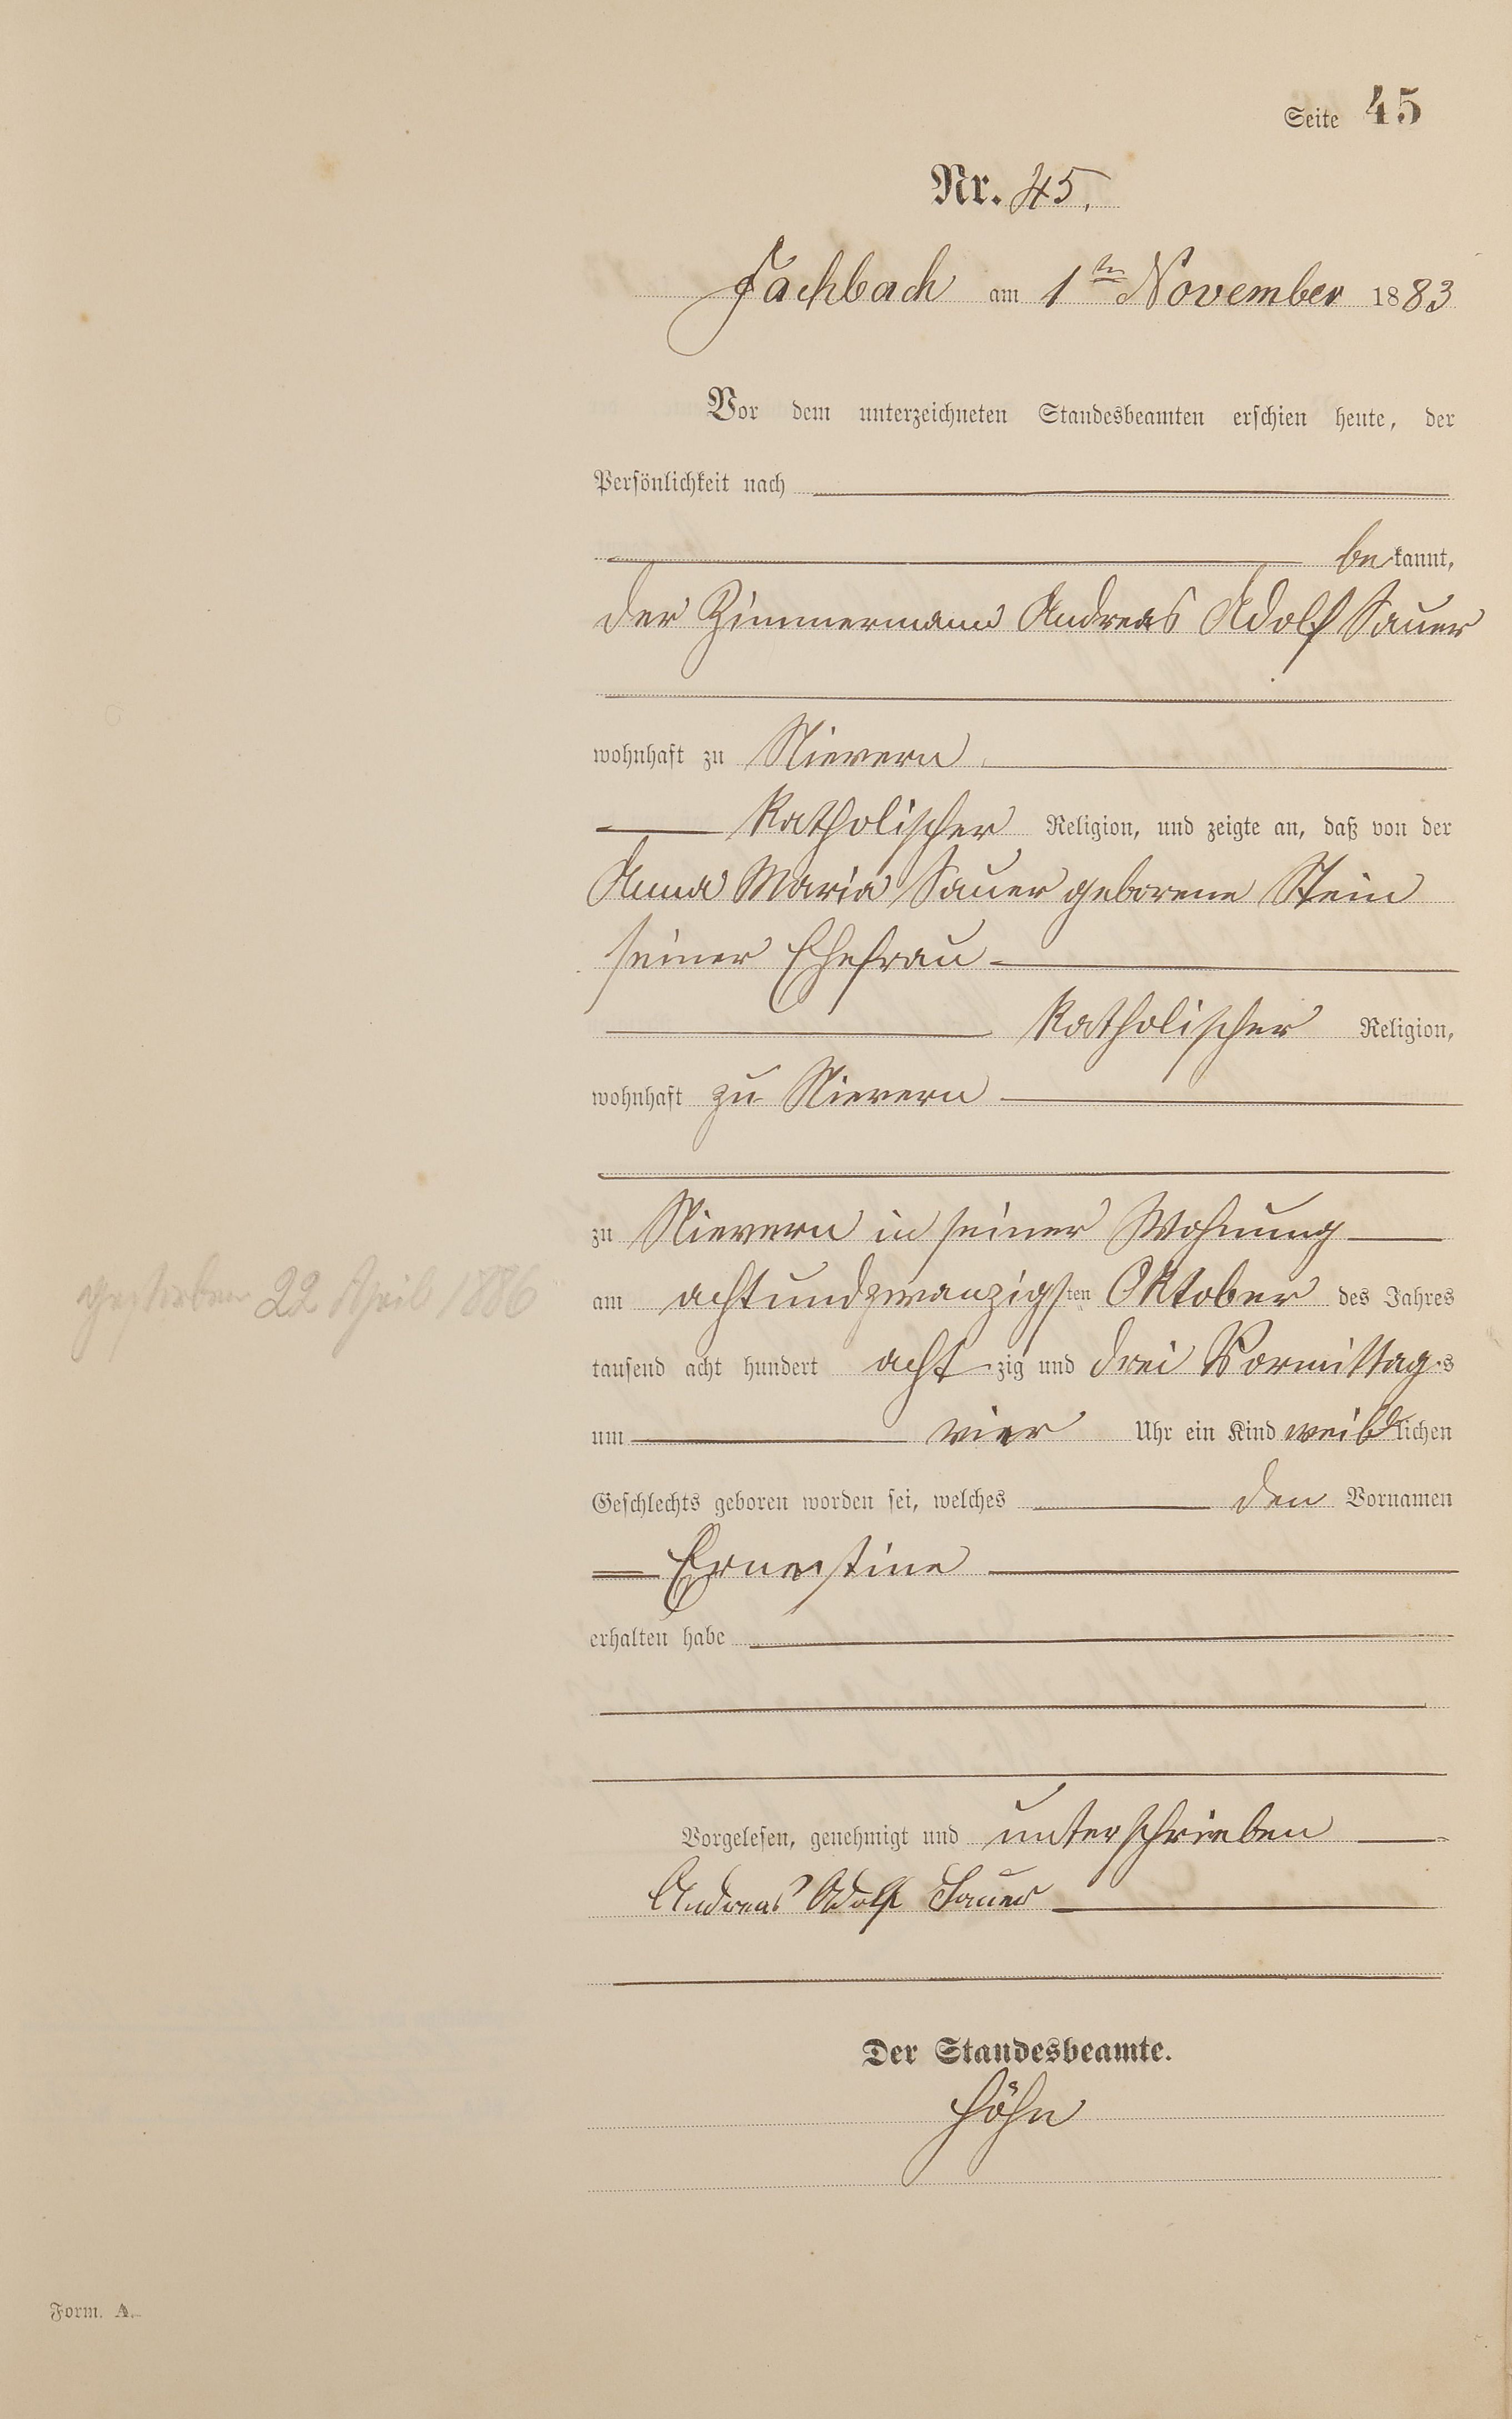 Seite 45
Nr. 45.
Fachbach am 1ten November 1883
Vor dem unterzeichneten Standesbeamten erschien heute, der
Persönlichkeit nach
bekannt,
der Zimmermann Andreas Adolf Sauer
wohnhaft zu Nievern
katholischer Religion, und zeigte an, daß von der
Anna Maria Sauer geborene Stein
seiner Ehefrau
katholischer Religion,
wohnhaft zu Nievern
zu Nievern in seiner Wohnung
gestorben 22 April 1886
am achtundzwanzigsten Oktober des Jahres
tausend acht hundert achtzig und drei Vormittags
um vier Uhr ein Kind weiblichen
Geschlechts geboren worden sei, welches den Vornamen
Ernestine
erhalten habe
Vorgelesen, genehmigt und unterschrieben
Andreas Adolf Sauer
Der Standesbeamte.
Höhn
Form. A.